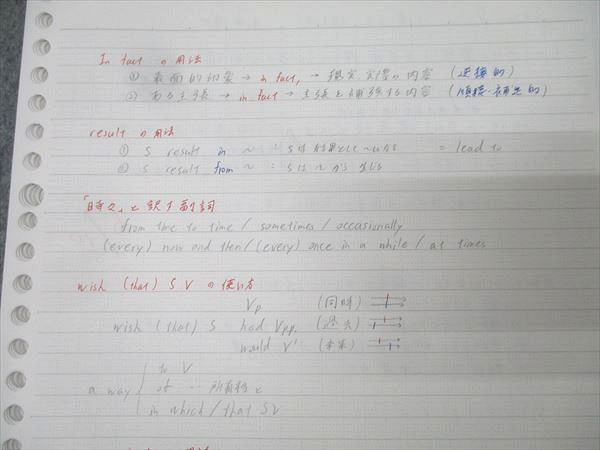 In fact の用法
① 表面的印象 → in fact, → 現実・実際の内容 (逆接的)
② ある主張 → in fact → 主張を補強する内容 (順接・補足的)
result の用法
① S result in ～ : Sは結果として～になる = lead to
② S result from ～ : Sは～から生じる
「時々」と訳す副詞
from time to time / sometimes / occasionally
(every) now and then / (every) once in a while / at times
wish (that) S V の使い方
Vp (同時)
wish (that) S had Vpp. (過去)
would V' (未来)
to V
a way of … 所有格と
in which / that SV